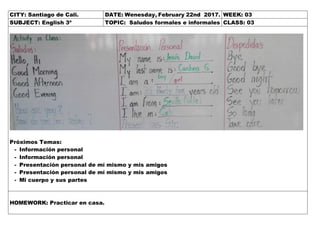 CITY: Santiago de Cali.
DATE: Wenesday, February 22nd 2017.
WEEK: 03
SUBJECT: English 3º
TOPIC: Saludos formales e informales
CLASS: 03
Activity in Class:
Saludos:
Hello, Hi
Good Morning
Good Afternoon
Good Evening
How are you?
How do you do?
Presentación Personal
My name is: Jesús David
My last name is: Cardona G
I am: a boy girl
I am: years old
I am from:
I live in: Cali
Despedidas
Bye
Good bye
Good night
See you tomorrow
See you later
So long
Take care
Próximos Temas:
- Información personal
- Información personal
- Presentación personal de mí mismo y mis amigos
- Presentación personal de mí mismo y mis amigos
- Mi cuerpo y sus partes
HOMEWORK: Practicar en casa.